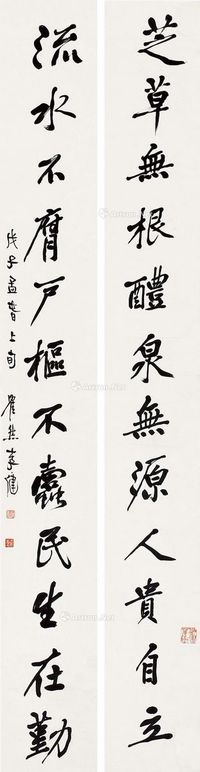 芝草無根醴泉無源人貴自立
流水不腐戶樞不蠹民生在勤
戊子孟春上旬
李健